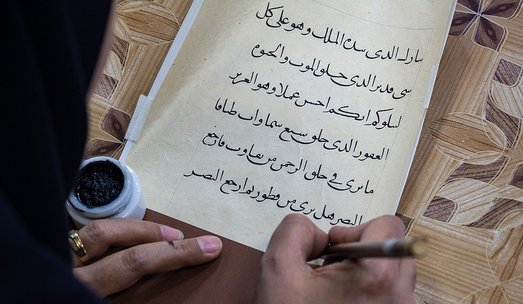 تبارك الذى بيده الملك وهو على كل
شى قدير الذى خلق الموت والحيوة
ليبلوكم ايكم احسن عملا وهو العزيز
الغفور الذى خلق سبع سموات طباقا
ما ترى فى خلق الرحمن من تفاوت فارجع
البصر هل ترى من فطور ثم ارجع البصر